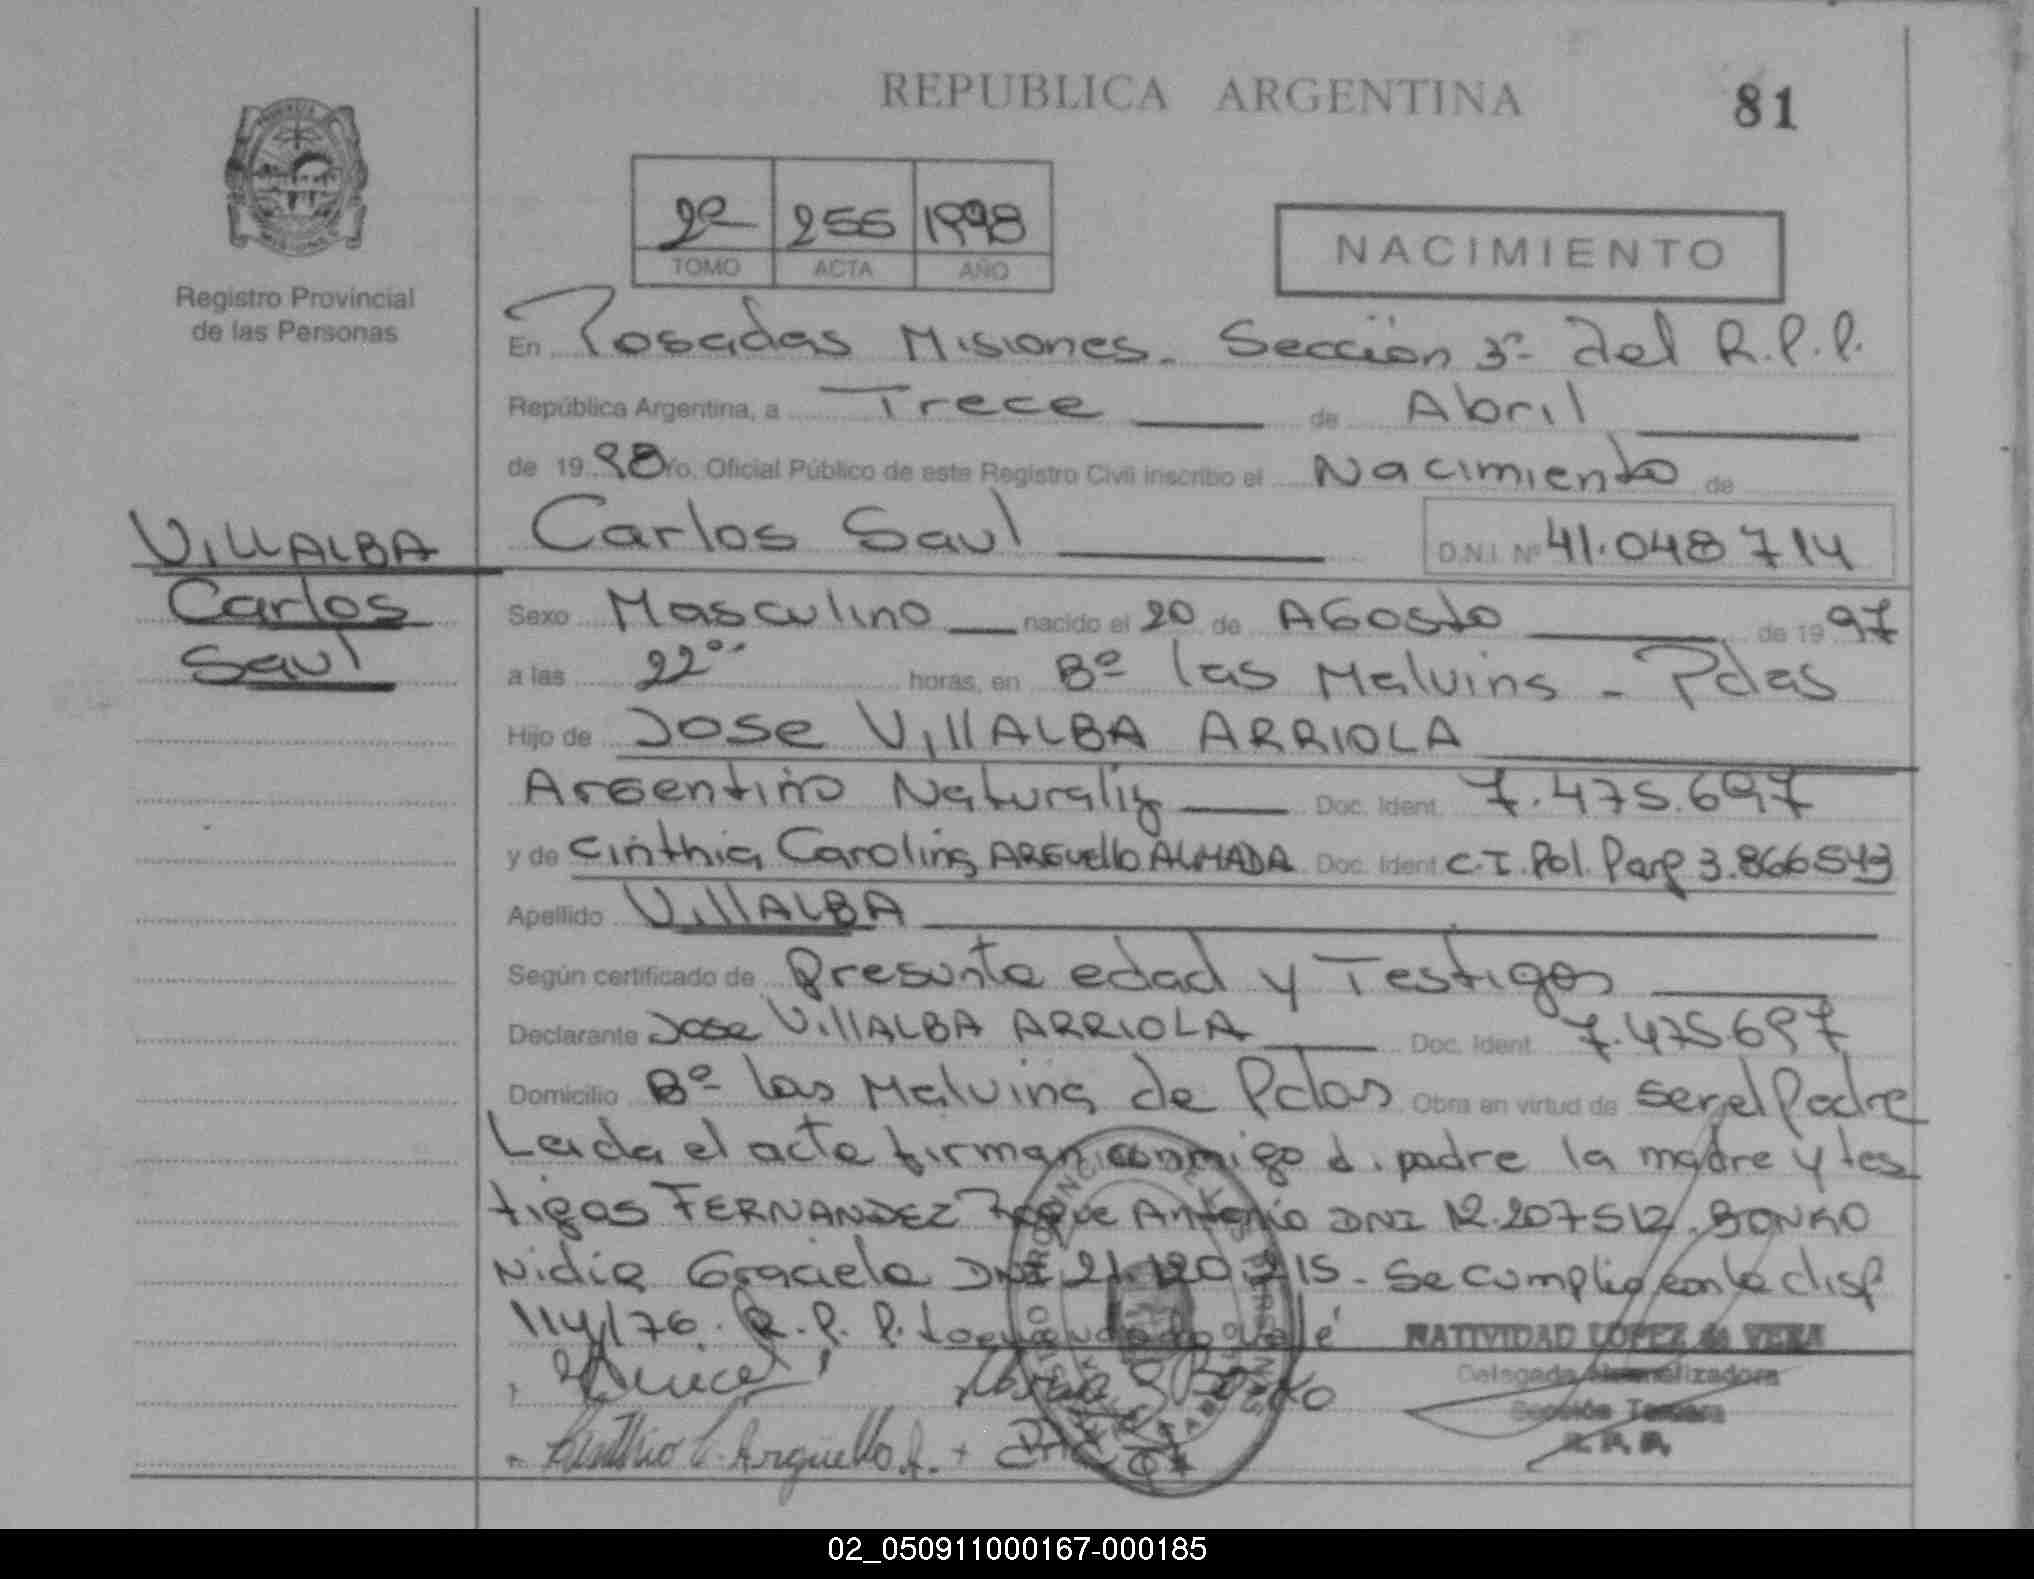 REPUBLICA ARGENTINA
81
2º 255 1998
TOMO ACTA AÑO
NACIMIENTO
Registro Provincial
de las Personas
En Posadas Misiones. Sección 3ª del R.P.P.
República Argentina, a Trece de Abril
de 1998 Yo, Oficial Público de este Registro Civil inscribo el Nacimiento de
VILLALBA
Carlos
Saul
Carlos Saul
D.N.I. Nº 41.048714
Sexo Masculino nacido el 20 de AGosto de 1997
a las 22ºº horas, en Bº las Malvins - Pdas
Hijo de Jose VillALBA ARRIOLA
Argentino Naturaliz Doc. Ident. 7.475.697
y de Cinthia Carolina ARGuello ALMADA Doc. Ident C.I. Pol. Parg 3.866543
Apellido VillALBA
Según certificado de Presunta edad y Testigos
Declarante Jose VillALBA ARRIOLA Doc. Ident. 7.475697
Domicilio Bº las Malvina de Pdas Obra en virtud de ser el Padre
Leida el acta firman conmigo el padre la madre y tes
tigos FERNANDEZ Roque Antonio DNI 12.207512. BONKO
Nidia Graciela DNI 21.120.215 - Se cumplio con la disp
114/76. R.P.P.
NATIVIDAD LOPEZ de VERA
Delegada Normalizadora
Sección Tercera
R.P.P.
Cinthia C. Arguello A.
02_050911000167-000185